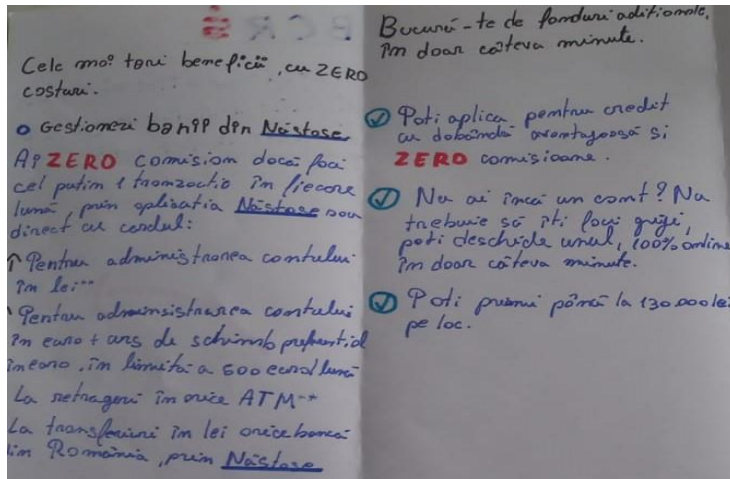 Cele mai tari beneficii, cu ZERO
costuri.
Gestionezi banii din Năstase
Ai ZERO comision dacă faci
cel putin 1 tranzactie în fiecare
lună prin aplicatia Năstase sau
direct cu cardul:
Pentru administrarea contului
în lei**
Pentru adminsistrarea contului
în euro + curs de schimb preferential
în euro, în limita a 600 euro/lună
La retrageri în orice ATM**
La transferuri în lei orice bancă
din România, prin Năstase
Bucură-te de fonduri aditionale,
în doar câteva minute.
Poti aplica pentru credit
cu dobândă avantagoasă si
ZERO comisioane.
Nu ai încă un cont? Nu
trebuie să îti faci griji,
poti deschide unul, 100% online
în doar câteva minute.
Poti primi până la 130.000 lei
pe loc.